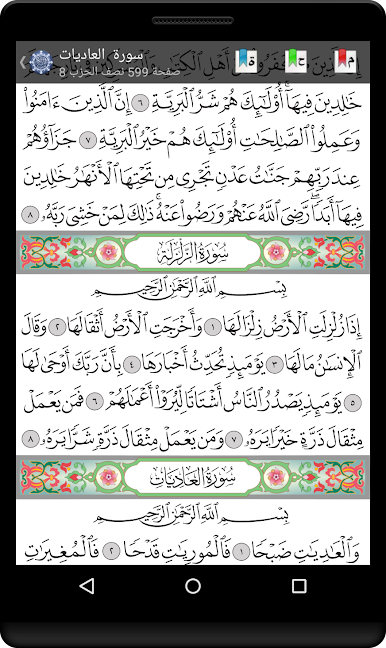 سورة العاديات
صفحة 599 نصف الحزب 8
م
ح
ة
خَٰلِدِينَ فِيهَآ أُو۟لَٰٓئِكَ هُمْ شَرُّ ٱلْبَرِيَّةِ ٦ إِنَّ ٱلَّذِينَ ءَامَنُوا۟
وَعَمِلُوا۟ ٱلصَّٰلِحَٰتِ أُو۟لَٰٓئِكَ هُمْ خَيْرُ ٱلْبَرِيَّةِ ٧ جَزَآؤُهُمْ
عِندَ رَبِّهِمْ جَنَّٰتُ عَدْنٍ تَجْرِى مِن تَحْتِهَا ٱلْأَنْهَٰرُ خَٰلِدِينَ
فِيهَآ أَبَدًا ۖ رَّضِىَ ٱللَّهُ عَنْهُمْ وَرَضُوا۟ عَنْهُ ۚ ذَٰلِكَ لِمَنْ خَشِىَ رَبَّهُۥ ٨
سُورَةُ الزَّلْزَلَةِ
بِسْمِ ٱللَّهِ ٱلرَّحْمَٰنِ ٱلرَّحِيمِ
إِذَا زُلْزِلَتِ ٱلْأَرْضُ زِلْزَالَهَا ١ وَأَخْرَجَتِ ٱلْأَرْضُ أَثْقَالَهَا ٢ وَقَالَ
ٱلْإِنسَٰنُ مَا لَهَا ٣ يَوْمَئِذٍ تُحَدِّثُ أَخْبَارَهَا ٤ بِأَنَّ رَبَّكَ أَوْحَىٰ لَهَا
٥ يَوْمَئِذٍ يَصْدُرُ ٱلنَّاسُ أَشْتَاتًا لِّيُرَوْا۟ أَعْمَٰلَهُمْ ٦ فَمَن يَعْمَلْ
مِثْقَالَ ذَرَّةٍ خَيْرًا يَرَهُۥ ٧ وَمَن يَعْمَلْ مِثْقَالَ ذَرَّةٍ شَرًّا يَرَهُۥ ٨
سُورَةُ العَادِيَاتِ
بِسْمِ ٱللَّهِ ٱلرَّحْمَٰنِ ٱلرَّحِيمِ
وَٱلْعَٰدِيَٰتِ ضَبْحًا ١ فَٱلْمُورِيَٰتِ قَدْحًا ٢ فَٱلْمُغِيرَٰتِ